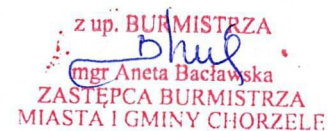 z up. BURMISTRZA
mgr Aneta Bacławska
ZASTĘPCA BURMISTRZA
MIASTA I GMINY CHORZELE